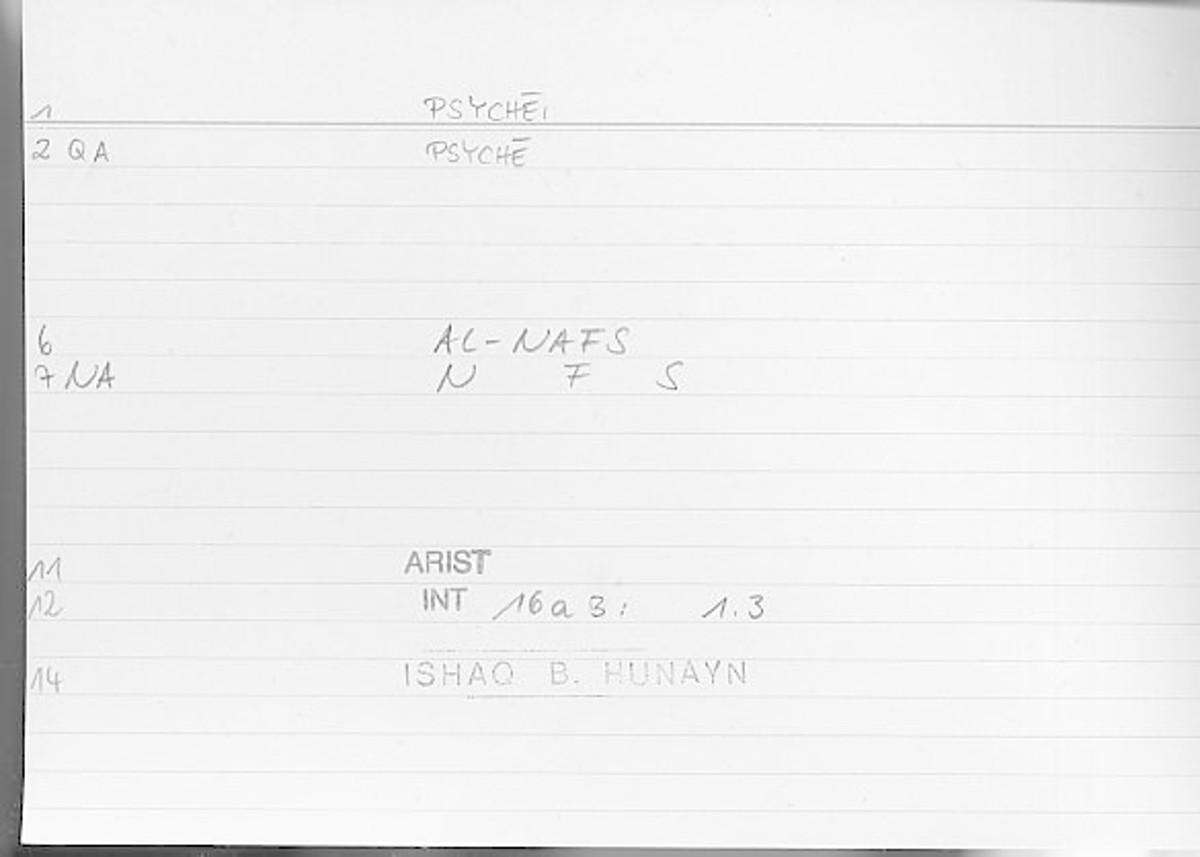 1 PSYCHĒI
2 QA PSYCHĒ
6 AL-NAFS
7 NA N F S
11 ARIST
12 INT 16a3: 1.3
14 ISHAQ B. HUNAYN